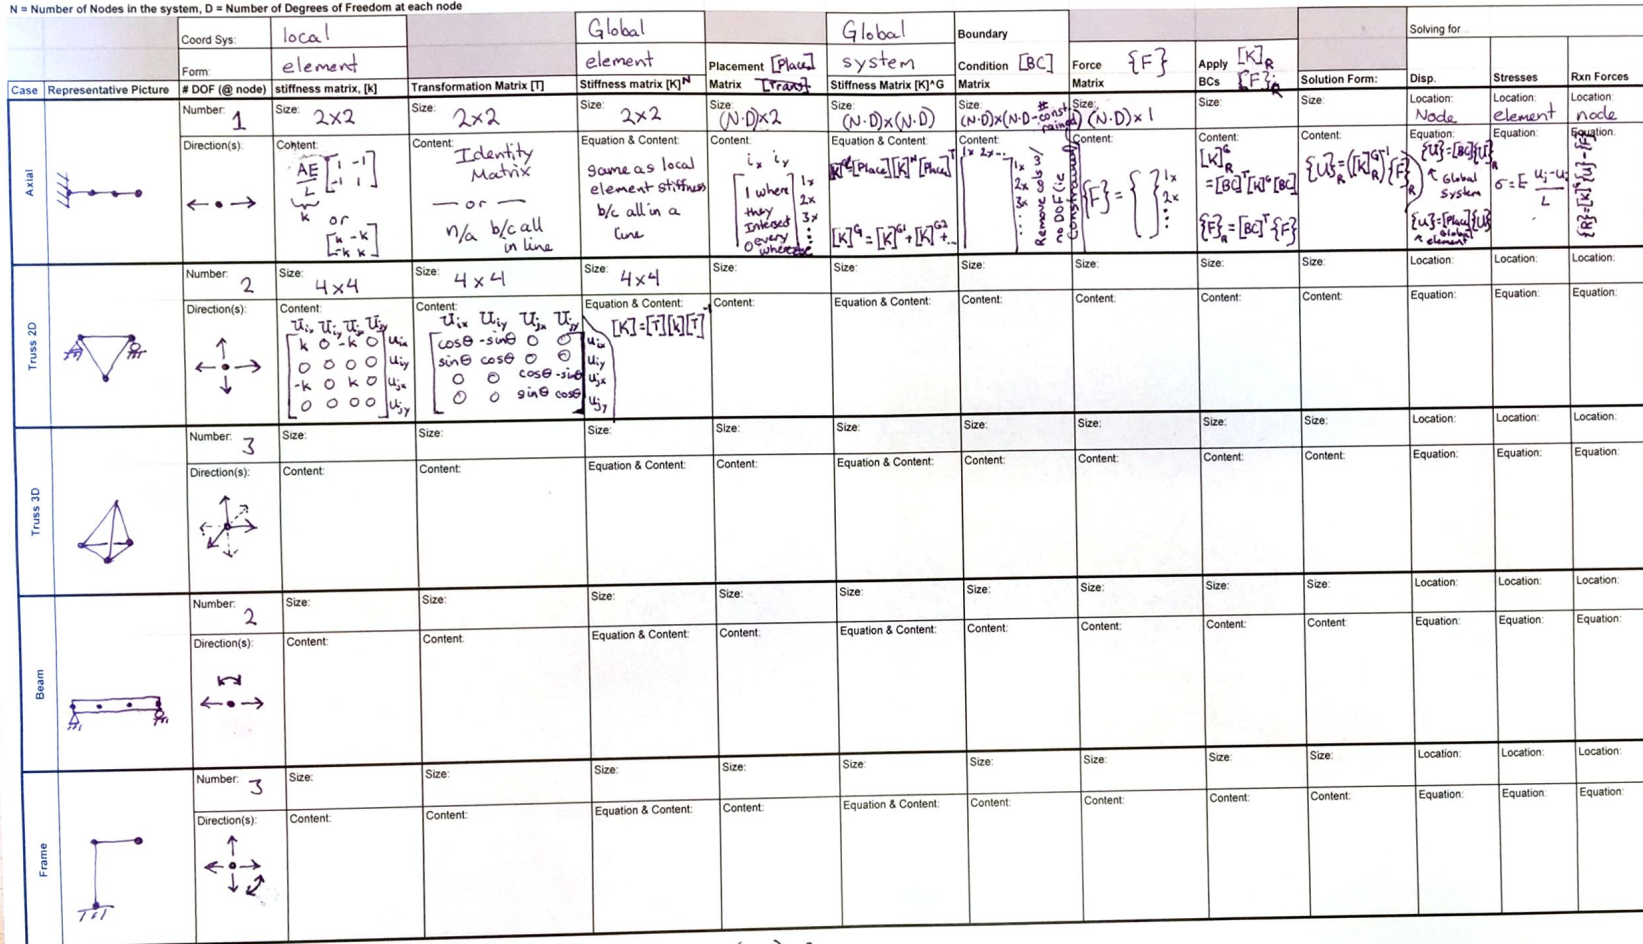 N = Number of Nodes in the system, D = Number of Degrees of Freedom at each node
Coord Sys: local Global Global Boundary Solving for...
Form: element element Placement [Place] system Condition [BC] Force {F} Apply [K]R
Case Representative Picture # DOF (@ node) stiffness matrix, [k] Transformation Matrix [T] Stiffness matrix [K]^N Matrix Stiffness Matrix [K]^G Matrix Matrix BCs {F}R Solution Form: Disp. Stresses Rxn Forces
Axial
Number: 1
Direction(s):
Size: 2x2
Content:
AE
L
[1 -1
-1 1]
k or
[k -k
-k k]
Size: 2x2
Content: Identity
Matrix
— or —
n/a b/c all
in line
Size: 2x2
Equation & Content:
same as local
element stiffness
b/c all in a
line
Size:
(N·D)x2
Content:
ix iy
1 where
they
intersect
0 every
where else
1x
2x
3x
Size:
(N·D)x(N·D)
Equation & Content:
=[Place][K]^N[Place]^T
[K]^G=[K]^G1+[K]^G2+...
Size: #
(N·D)x(N·D-constrained)
Content:
1x 2x...
1x
2x
3x
Remove cols w/
no DOF (ie
constrained)
Size:
(N·D)x1
Content:
{F}={ }
1x
2x
Size:
Content:
[K]^G R
=[BC]^T[K]^G[BC]
{F}R=[BC]^T{F}
Size:
Content:
{U}R=([K]^G R)^-1{F}R
Location:
Node
Equation:
{U}=[BC]{U}R
↑ Global
System
{u}=[Place]{U}
↑ Global
element
Location:
element
Equation:
σ=E uj-ui
L
Location:
node
Equation:
{R}=[K]^G{U}-{F}
Truss 2D
Number: 2
Direction(s):
Size: 4x4
Content:
Uix Uiy Ujx Ujy
k 0 -k 0 uix
0 0 0 0 uiy
-k 0 k 0 ujx
0 0 0 0 ujy
Size: 4x4
Content:
Uix Uiy Ujx Ujy
cosθ -sinθ 0 0 uix
sinθ cosθ 0 0 uiy
0 0 cosθ -sinθ ujx
0 0 sinθ cosθ ujy
Size: 4x4
Equation & Content:
[K]=[T][k][T]^-1
Size:
Content:
Size:
Equation & Content:
Size:
Content:
Size:
Content:
Size:
Content:
Size:
Content:
Location:
Equation:
Location:
Equation:
Location:
Equation:
Truss 3D
Number: 3
Direction(s):
Size:
Content:
Size:
Content:
Size:
Equation & Content:
Size:
Content:
Size:
Equation & Content:
Size:
Content:
Size:
Content:
Size:
Content:
Size:
Content:
Location:
Equation:
Location:
Equation:
Location:
Equation:
Beam
Number: 2
Direction(s):
Size:
Content:
Size:
Content:
Size:
Equation & Content:
Size:
Content:
Size:
Equation & Content:
Size:
Content:
Size:
Content:
Size:
Content:
Size:
Content:
Location:
Equation:
Location:
Equation:
Location:
Equation:
Frame
Number: 3
Direction(s):
Size:
Content:
Size:
Content:
Size:
Equation & Content:
Size:
Content:
Size:
Equation & Content:
Size:
Content:
Size:
Content:
Size:
Content:
Size:
Content:
Location:
Equation:
Location:
Equation:
Location:
Equation: